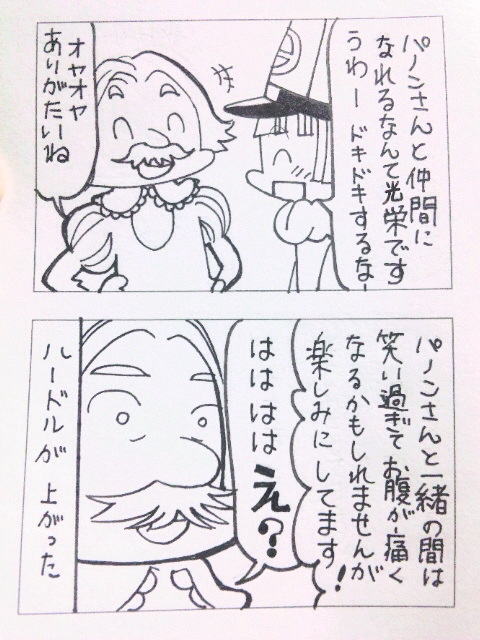 パノンさんと仲間に
なれるなんて光栄です
うわー ドキドキするなー
オヤオヤ
ありがたいね
パノンさんと一緒の間は
笑い過ぎて お腹が痛く
なるかもしれませんが
楽しみにしてます!
はは はは え?
ハードルが 上がった